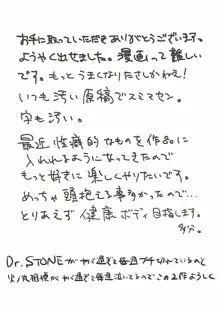 お手に取っていただきありがとうございます。
ようやく出せました。漫画って難しい
です。もっとうまくなりたさしかねェ!
いつも汚い原稿でスミマセン。
字も汚い。
最近性癖的なものを作品に
入れれるようになってきたので
もっと好きに楽しくやりたいです。
めっちゃ頭抱える事多かったので…
とりあえず健康ボディ目指します。
多分。
Dr.STONEがヤバ過ぎて毎週ブチ切れているのと
火ノ丸相撲がヤバ過ぎて毎週泣いてるのでこの2作ようしく